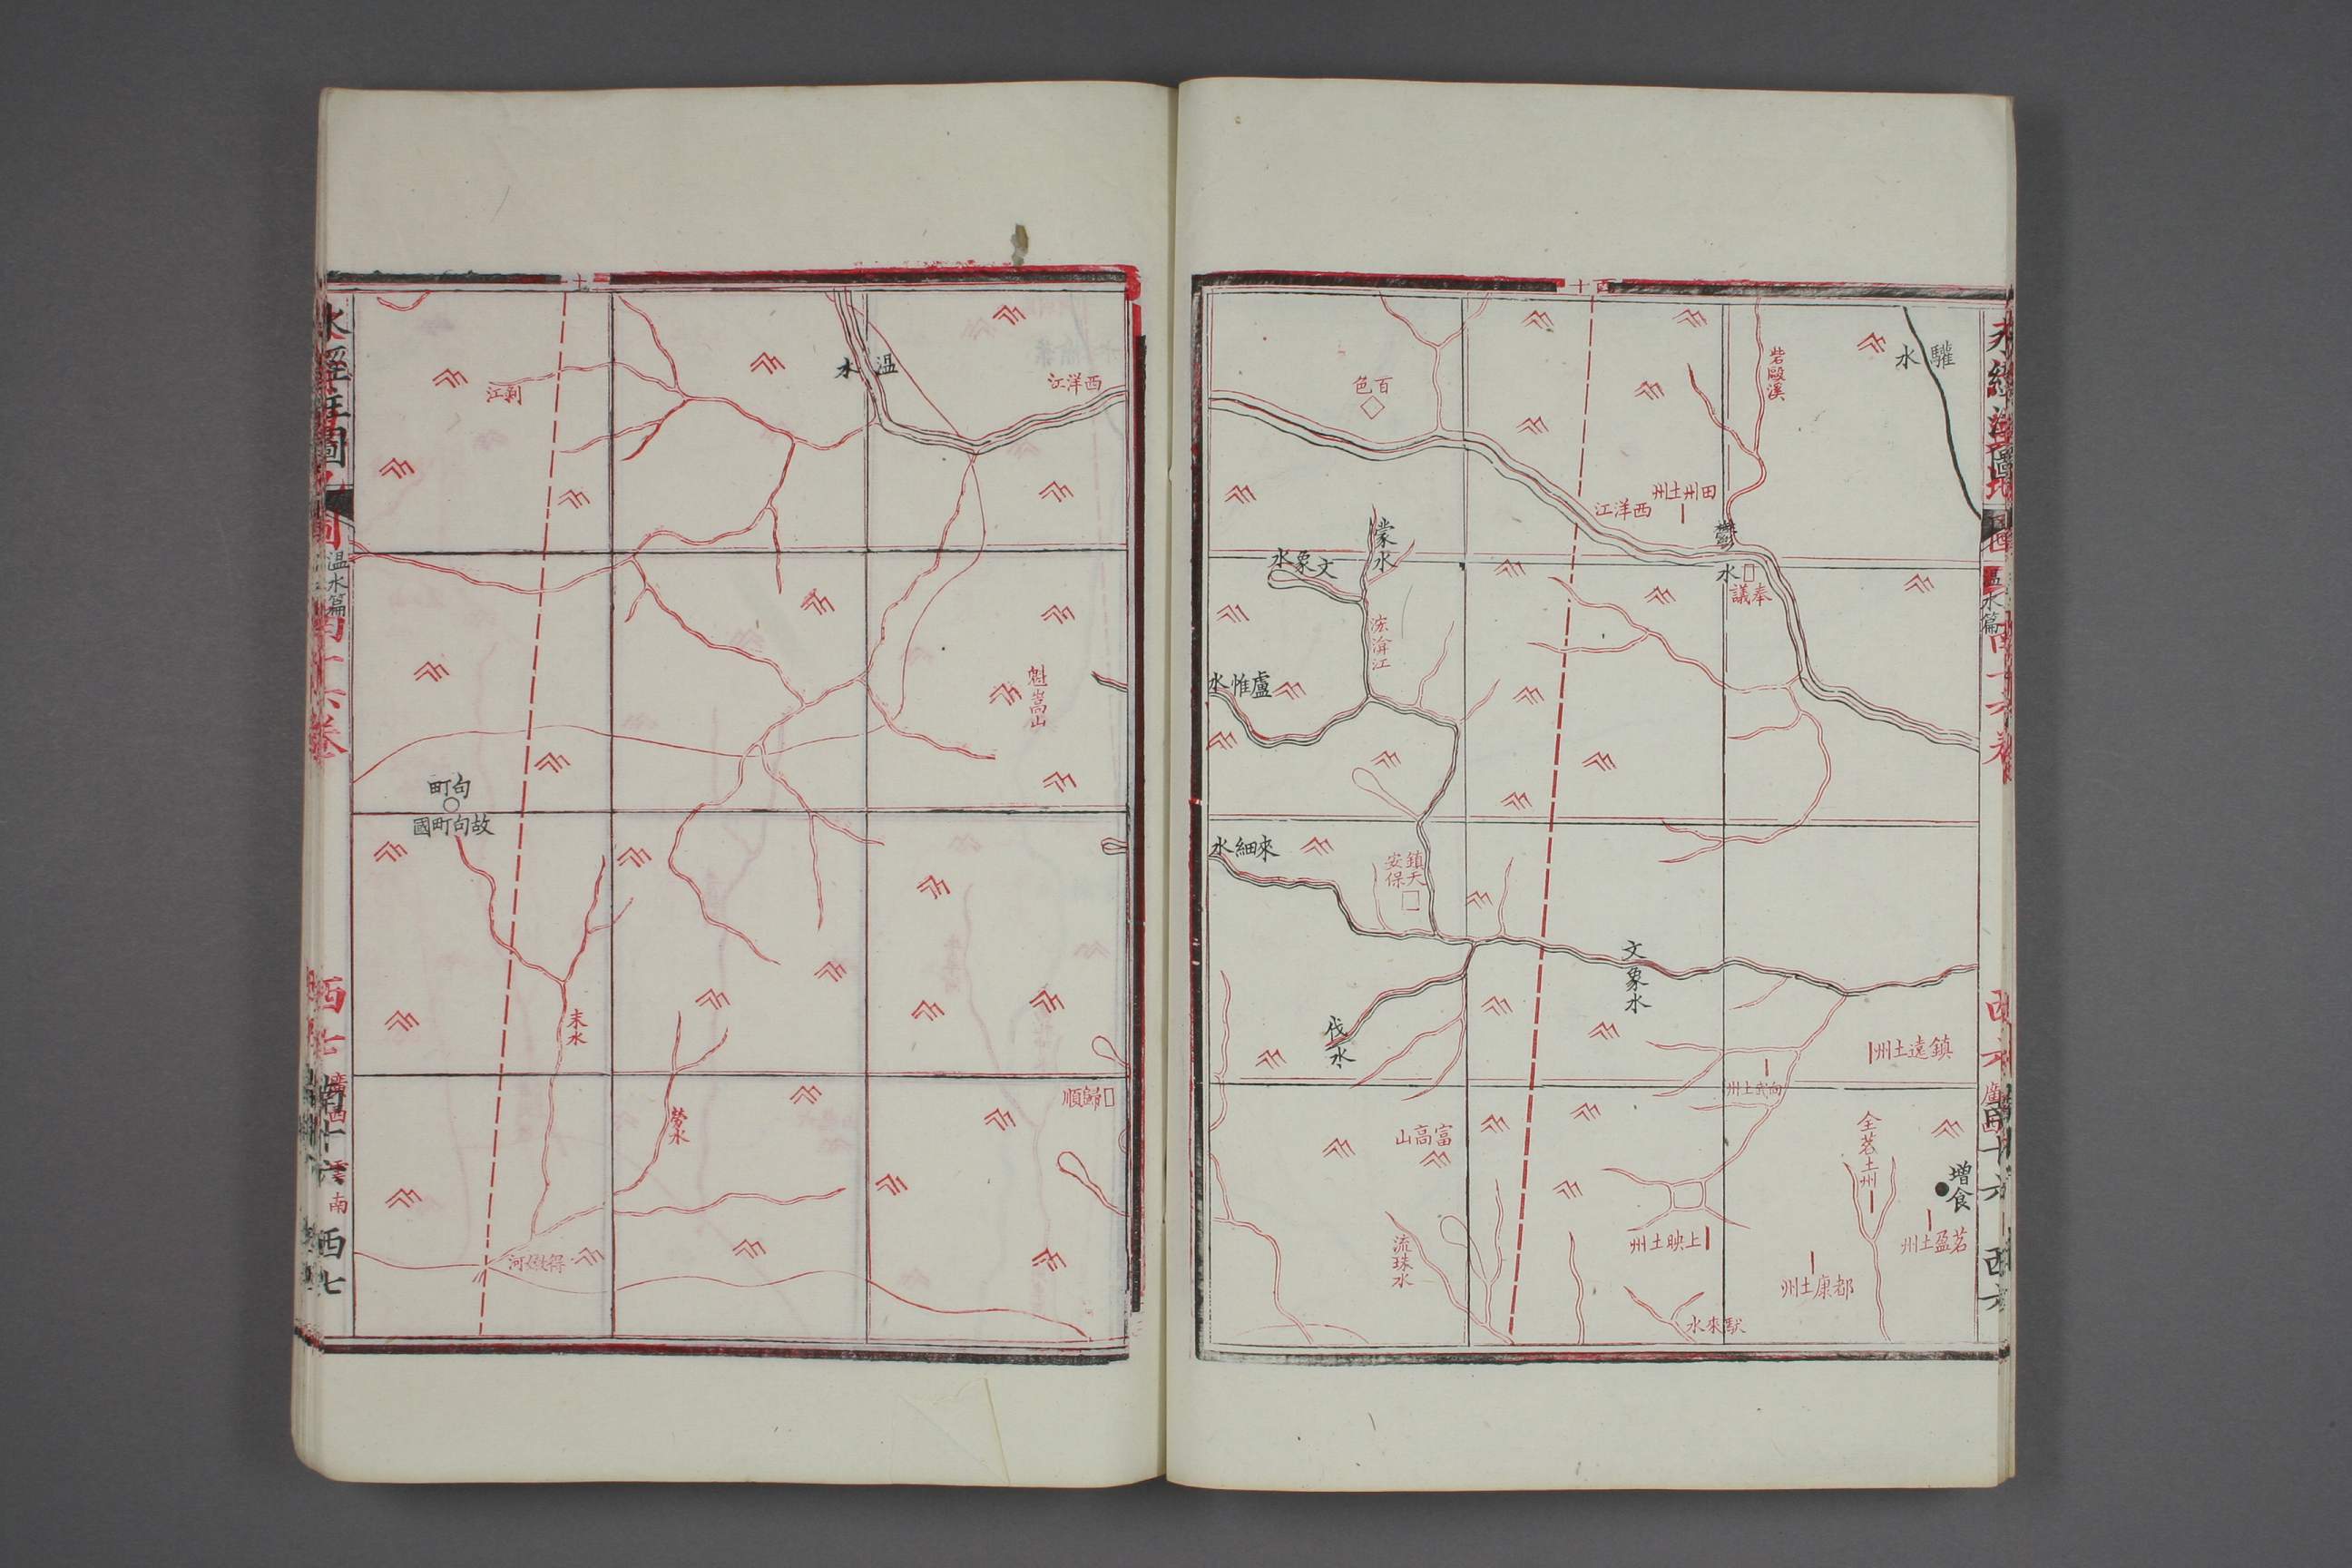 水經注圖
溫水篇
南十六卷
西七
廣西
雲南
南十六
西七
水經注圖
溫水篇
南十六卷
西六
廣西
南十六
西六
驩水
砦毆溪
百色
田州土州
西洋江
鬱水
奉議
濛水
文象水
泓渰江
盧惟水
來細水
鎮安
天保
文象水
伐水
鎮遠土州
向武土州
富高山
全茗土州
增食
茗盈土州
上映土州
都康土州
流珠水
馱來水
溫水
西洋江
剥江
魁嵩山
句町
故句町國
耒水
歸順
勞水
得墩河